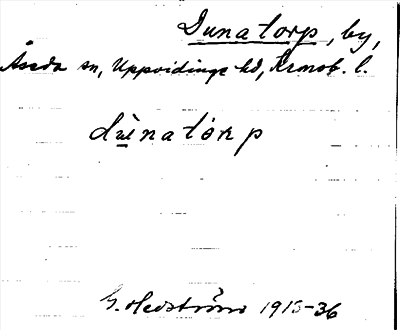 Dunatorp, by,
Åseda sn, Uppvidinge hd, Kronob. l.
dùnatórp
G. Hedström 1915-36